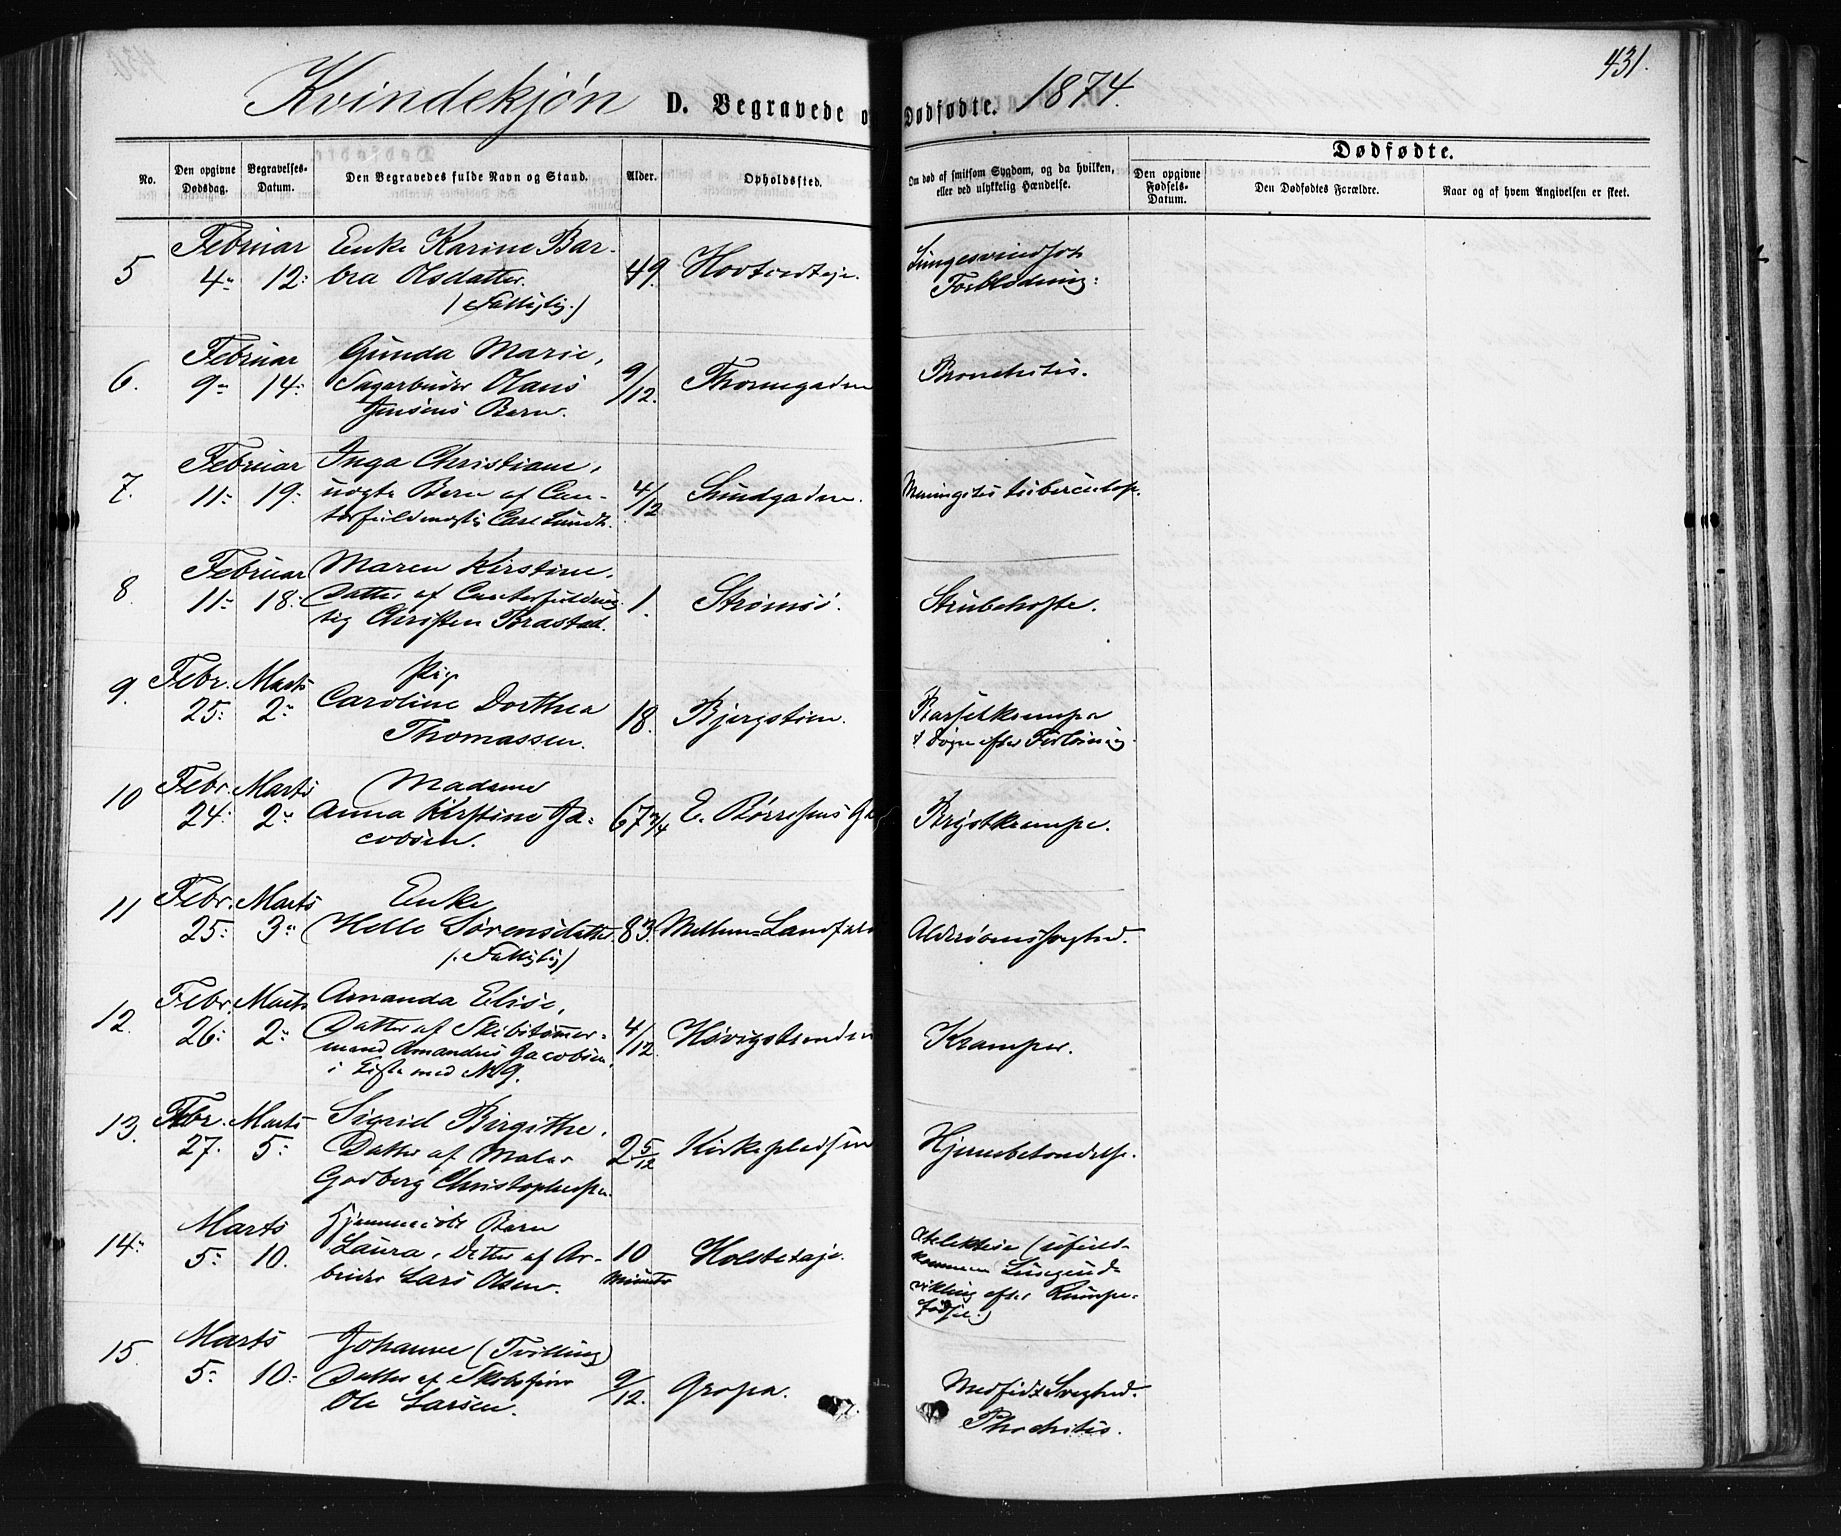 431.
Kvindekjøn D. Begravede o Dødfødte. 1874.
No.
Den opgivne Dødsdag.
Begravelses-Datum.
Den Begravedes fulde Navn og Stand.
Alder.
Opholdssted.
Om død af smitsom Sygdom, og da hvilken,
eller ved ulykkelig Hændelse.
Dødfødte.
Den opgivne Fødsels-Datum.
Den Dødfødtes Forældre.
Naar og af hvem Angivelsen er skeet.
Februar Enke Karine Bar-
5 4 12 bra Olsdatter. 49.
(Fattiglig.)
Forblødning.
Februar Gunda Marie,
6. 9 14 Sagarbeider Olaus 9/12. Bronchitis.
Jensens Barn.
Februar Inga Christiane,
7. 11 19 uægte Barn af Can- 4/12 Sundgaden. Meningitis tuberculos.
torfuldmægtig Carl Lundt.
Februar Maren Kirstine,
8. 11 18 Datter af Cantorfuldmæg- 1. Strømsø. Strubehoste.
tig Christen Brastad.
Febr. Marts Pige
9. 25 2 Caroline Dorthea 18. Bjergstien. Barselkrampe
Thomassen. Døgn efter Forløsning.
Febr. Marts Madame
10 24 2 Anna Kirstine Ja- 67 3/4 E. Børresens Ga Brystkrampe.
cobsen.
Febr. Marts Enke
11 25 3 Helle Sørensdatter 83. Mellem-Landfald Alderdomssvaghed.
(Fattiglig)
Febr. Marts Amanda Elise,
12. 26 2 Datter af Skibstømmer- 4/12 Kramper.
mand Amandus Jacobsen,
i Liste med No 9.
Febr. Marts Sigrid Birgithe,
13. 27. 5 Datter af Maler 2 5/12 Kirkepladsen Hjernebetændelse.
Godberg Christophersen.
Marts Hjemmedøbt Barn
14 5 10. Laura, Datter af Ar- 10 Minuter
beider Lars Olsen.
Atelektase (ufuld-
kommen Lungeud-
vikling efter
Marts Johanne (Tvilling)
15. 5 10 Datter af 9/12. Gropa. Medfødt Svaghed.
Ole Larsen. Bronchitis.